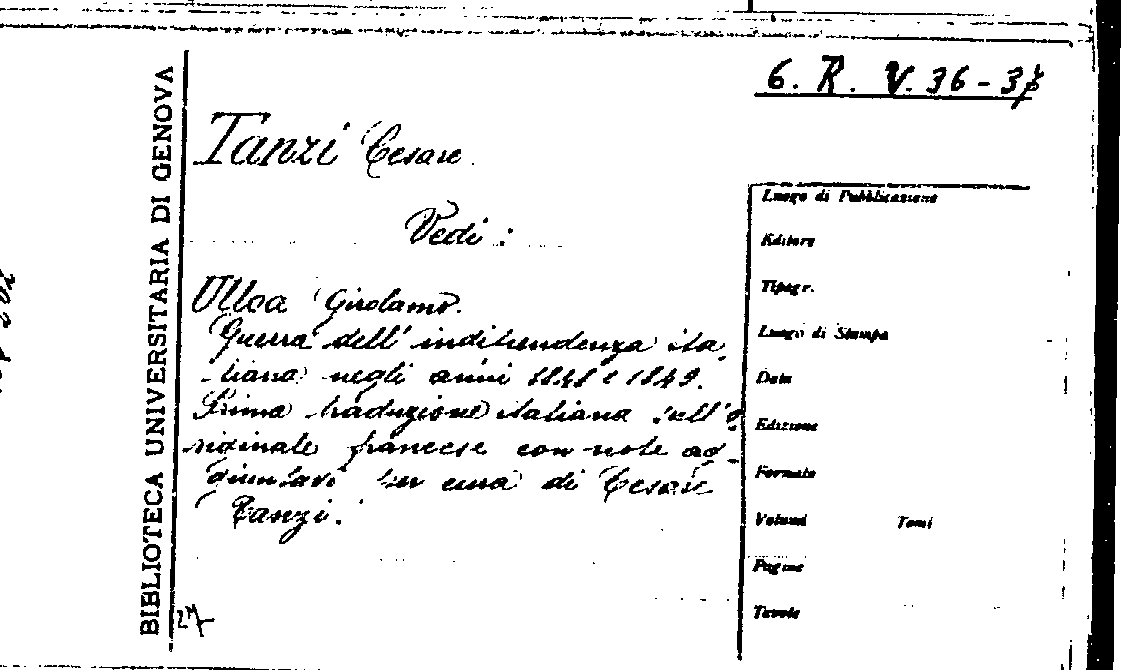 BIBLIOTECA UNIVERSITARIA DI GENOVA
6. R. V. 36-37
Tanzi Cesare.
Vedi:
Ulloa Girolamo.
Guerra dell'indipendenza ita-
liana negli anni 1848 e 1849.
Prima traduzione italiana sull'o-
riginale francese con note ag-
giuntavi per cura di Cesare
Tanzi.
27
Luogo di Pubblicazione
Editore
Tipogr.
Luogo di Stampa
Data
Edizione
Formato
Volumi Tomi
Pagine
Tavole